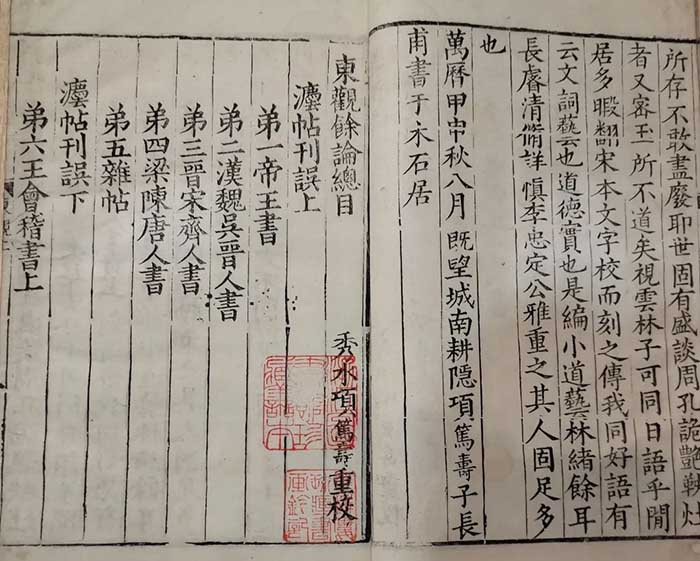 所存不敢盡廢耶世固有盛談周孔詭艷
者又審王所不道矣視雲林子可同日語乎閒
居多暇翻宋本文字校而刻之傳我同好語有
云文詞藝也道德實也是編小道藝林緒餘耳
長睿清脩詳慎李忠定公雅重之其人固足多
也
萬曆甲申秋八月既望城南耕隱項篤壽子長
甫書于石居
東觀餘論總目
秀水項篤壽重校
灋帖刊誤上
弟一帝王書
弟二漢魏吳晉人書
弟三晉宋齊人書
弟四梁陳唐人書
弟五雜帖
灋帖刊誤下
弟六王會稽書上